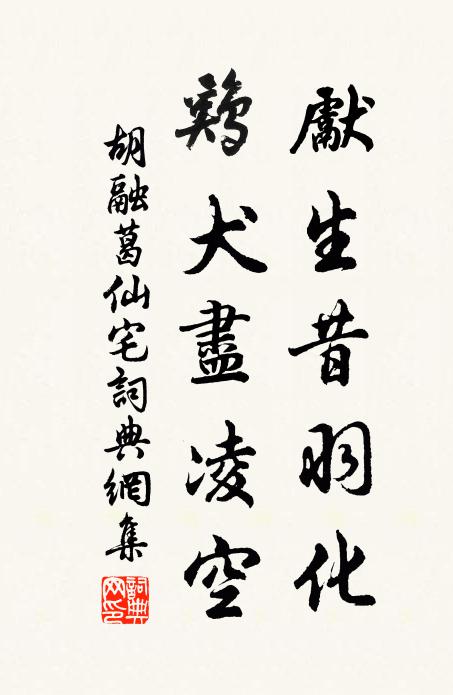 獻生昔羽化
鷄犬盡凌空
胡融葛仙宅詞典網集
詞典網印